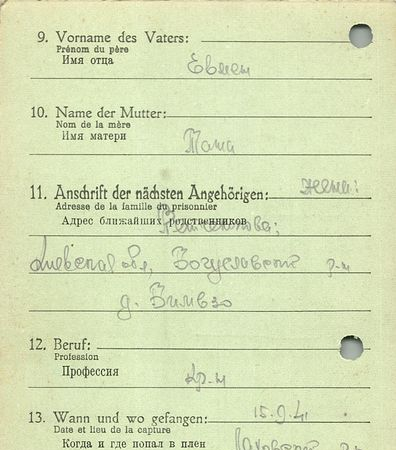 9. Vorname des Vaters:
Prénom du père
Имя отца Евмен
10. Name der Mutter:
Nom de la mère
Имя матери
11. Anschrift der nächsten Angehörigen: жена:
Adresse de la famille du prisonnier
Адрес ближайших родственников
обл, Богуславский р-н
д.
12. Beruf:
Profession
Профессия кр-н
13. Wann und wo gefangen: 15.9.41
Date et lieu de la capture
Когда и где попал в плен